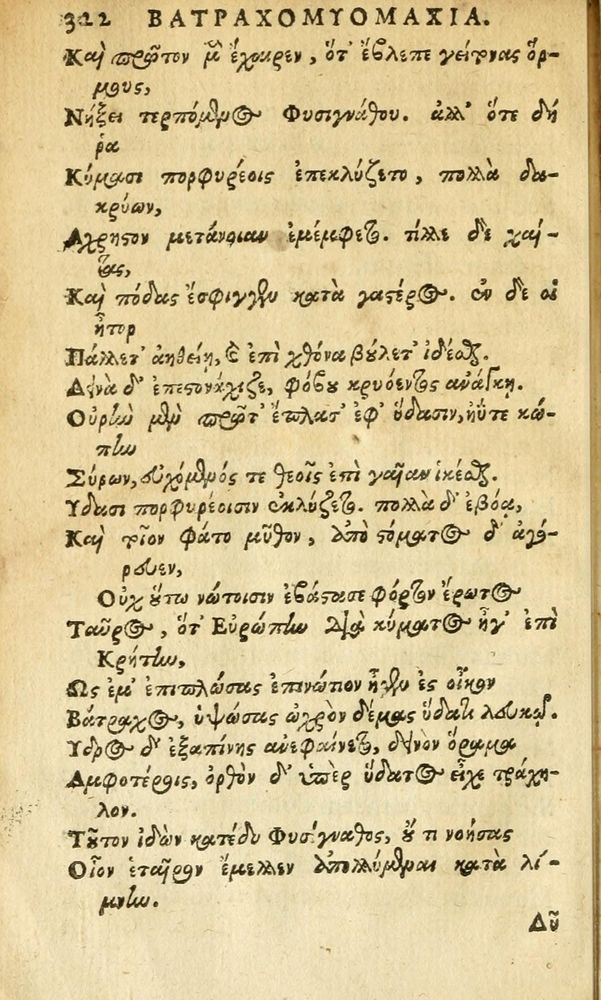 322 ΒΑΤΡΑΧΟΜΥΟΜΑΧΙΑ.
Καὶ πρῶτον μὲν ἔχαιρεν, ὅτ' ἔβλεπε γείτονας ὅρ-
μους,
Νήξει τερπόμενος Φυσιγνάθου. ἀλλ' ὅτε δή
ῥα
Κύμασι πορφυρέοις ἐπεκλύζετο, πολλὰ δα-
κρύων,
Αχρηστον μετάνοιαν ἐμέμφετο. τίλλε δὲ χαί-
τας,
Καὶ πόδας ἔσφιγγεν κατὰ γαστέρος. ἐν δέ οἱ
ἦτορ
Πάλλετ' ἀηθείῃ, καὶ ἐπὶ χθόνα βούλετ' ἰδέσθαι.
Δεινὰ δ' ἐπεστονάχιζε, φόβου κρυόεντος ἀνάγκῃ.
Οὐρὴν μὲν πρῶτ' ἔπλασ' ἐφ' ὕδασιν, ἠΰτε κώ-
πην
Σύρων, εὐχόμενός τε θεοῖς ἐπὶ γαῖαν ἱκέσθαι.
Υδασι πορφυρέοισιν ἐκλύζετο. πολλὰ δ' ἐβόα,
Καὶ τοῖον φάτο μῦθον, ἀπὸ στόματος δ' ἀγό-
ρευεν,
Οὐχ οὕτω νώτοισιν ἐβάστασε φόρτον ἔρωτος
Ταῦρος, ὅτ' Εὐρώπην διὰ κύματος ἦγ' ἐπὶ
Κρήτην,
Ως ἔμ' ἐπιπλώσας ἐπινώτιον ἦγεν ἐς οἶκον
Βάτραχος, ὑψώσας ὠχρὸν δέμας ὕδατι λευκῷ.
Υδρος δ' ἐξαπίνης ἀνεφαίνετο, δεινὸν ὅραμα
Αμφοτέροις, ὀρθὸν δ' ὑπὲρ ὕδατος εἶχε τράχη-
λον.
Τοῦτον ἰδὼν κατέδυ Φυσίγναθος, οὔ τι νοήσας
Οἷον ἑταῖρον ἔμελλεν ἀπολλύμεναι κατὰ λί-
μνην.
Δῦ